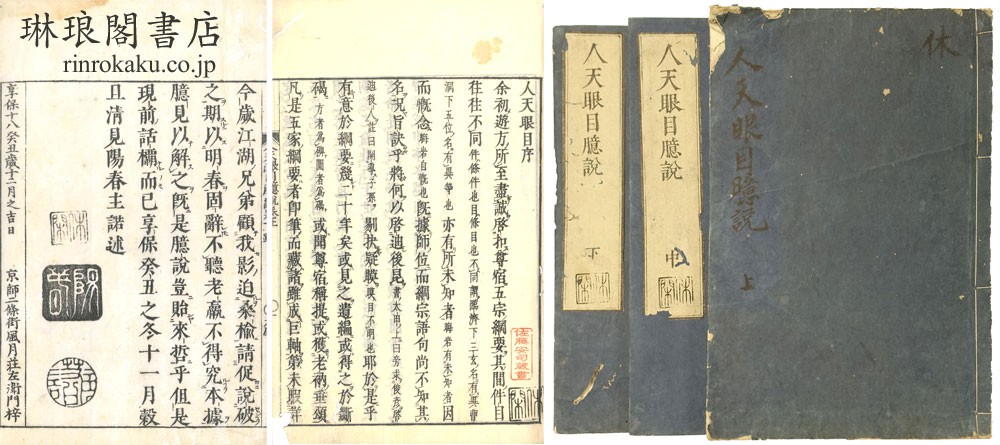 琳琅閣書店
rinrokaku.co.jp
今歳江湖兄弟顧我影迫桑榆請促說破
之期以明春固辭不聽老羸不得究本據
臆見以解之既是臆說豈貽來哲乎但是
現前話欛而已享保癸丑之冬十一月穀
旦清見陽春主諾述
享保十八癸丑歳十二月之吉日
京師二條街風月荘左衛門梓
人天眼目序
余初遊方所至盡誠啓扣尊宿五宗綱要其間件目
往往不同
亦有所未知者
因
而慨念
既據師位而綱宗語句尚不知其
名況旨訣乎將何以啓迪後昆
剔抉疑膜
耶於是乎
有意於綱要幾二十年矣或見之遺編或得之於斷
碣
或聞尊宿稱提或獲老衲垂頌
凡是五家綱要者即筆而藏諸雖成巨軸第未暇詳
佐藤安司蔵書
人天眼目臆說
下
人天眼目臆說
中
人天眼目臆説
上
休